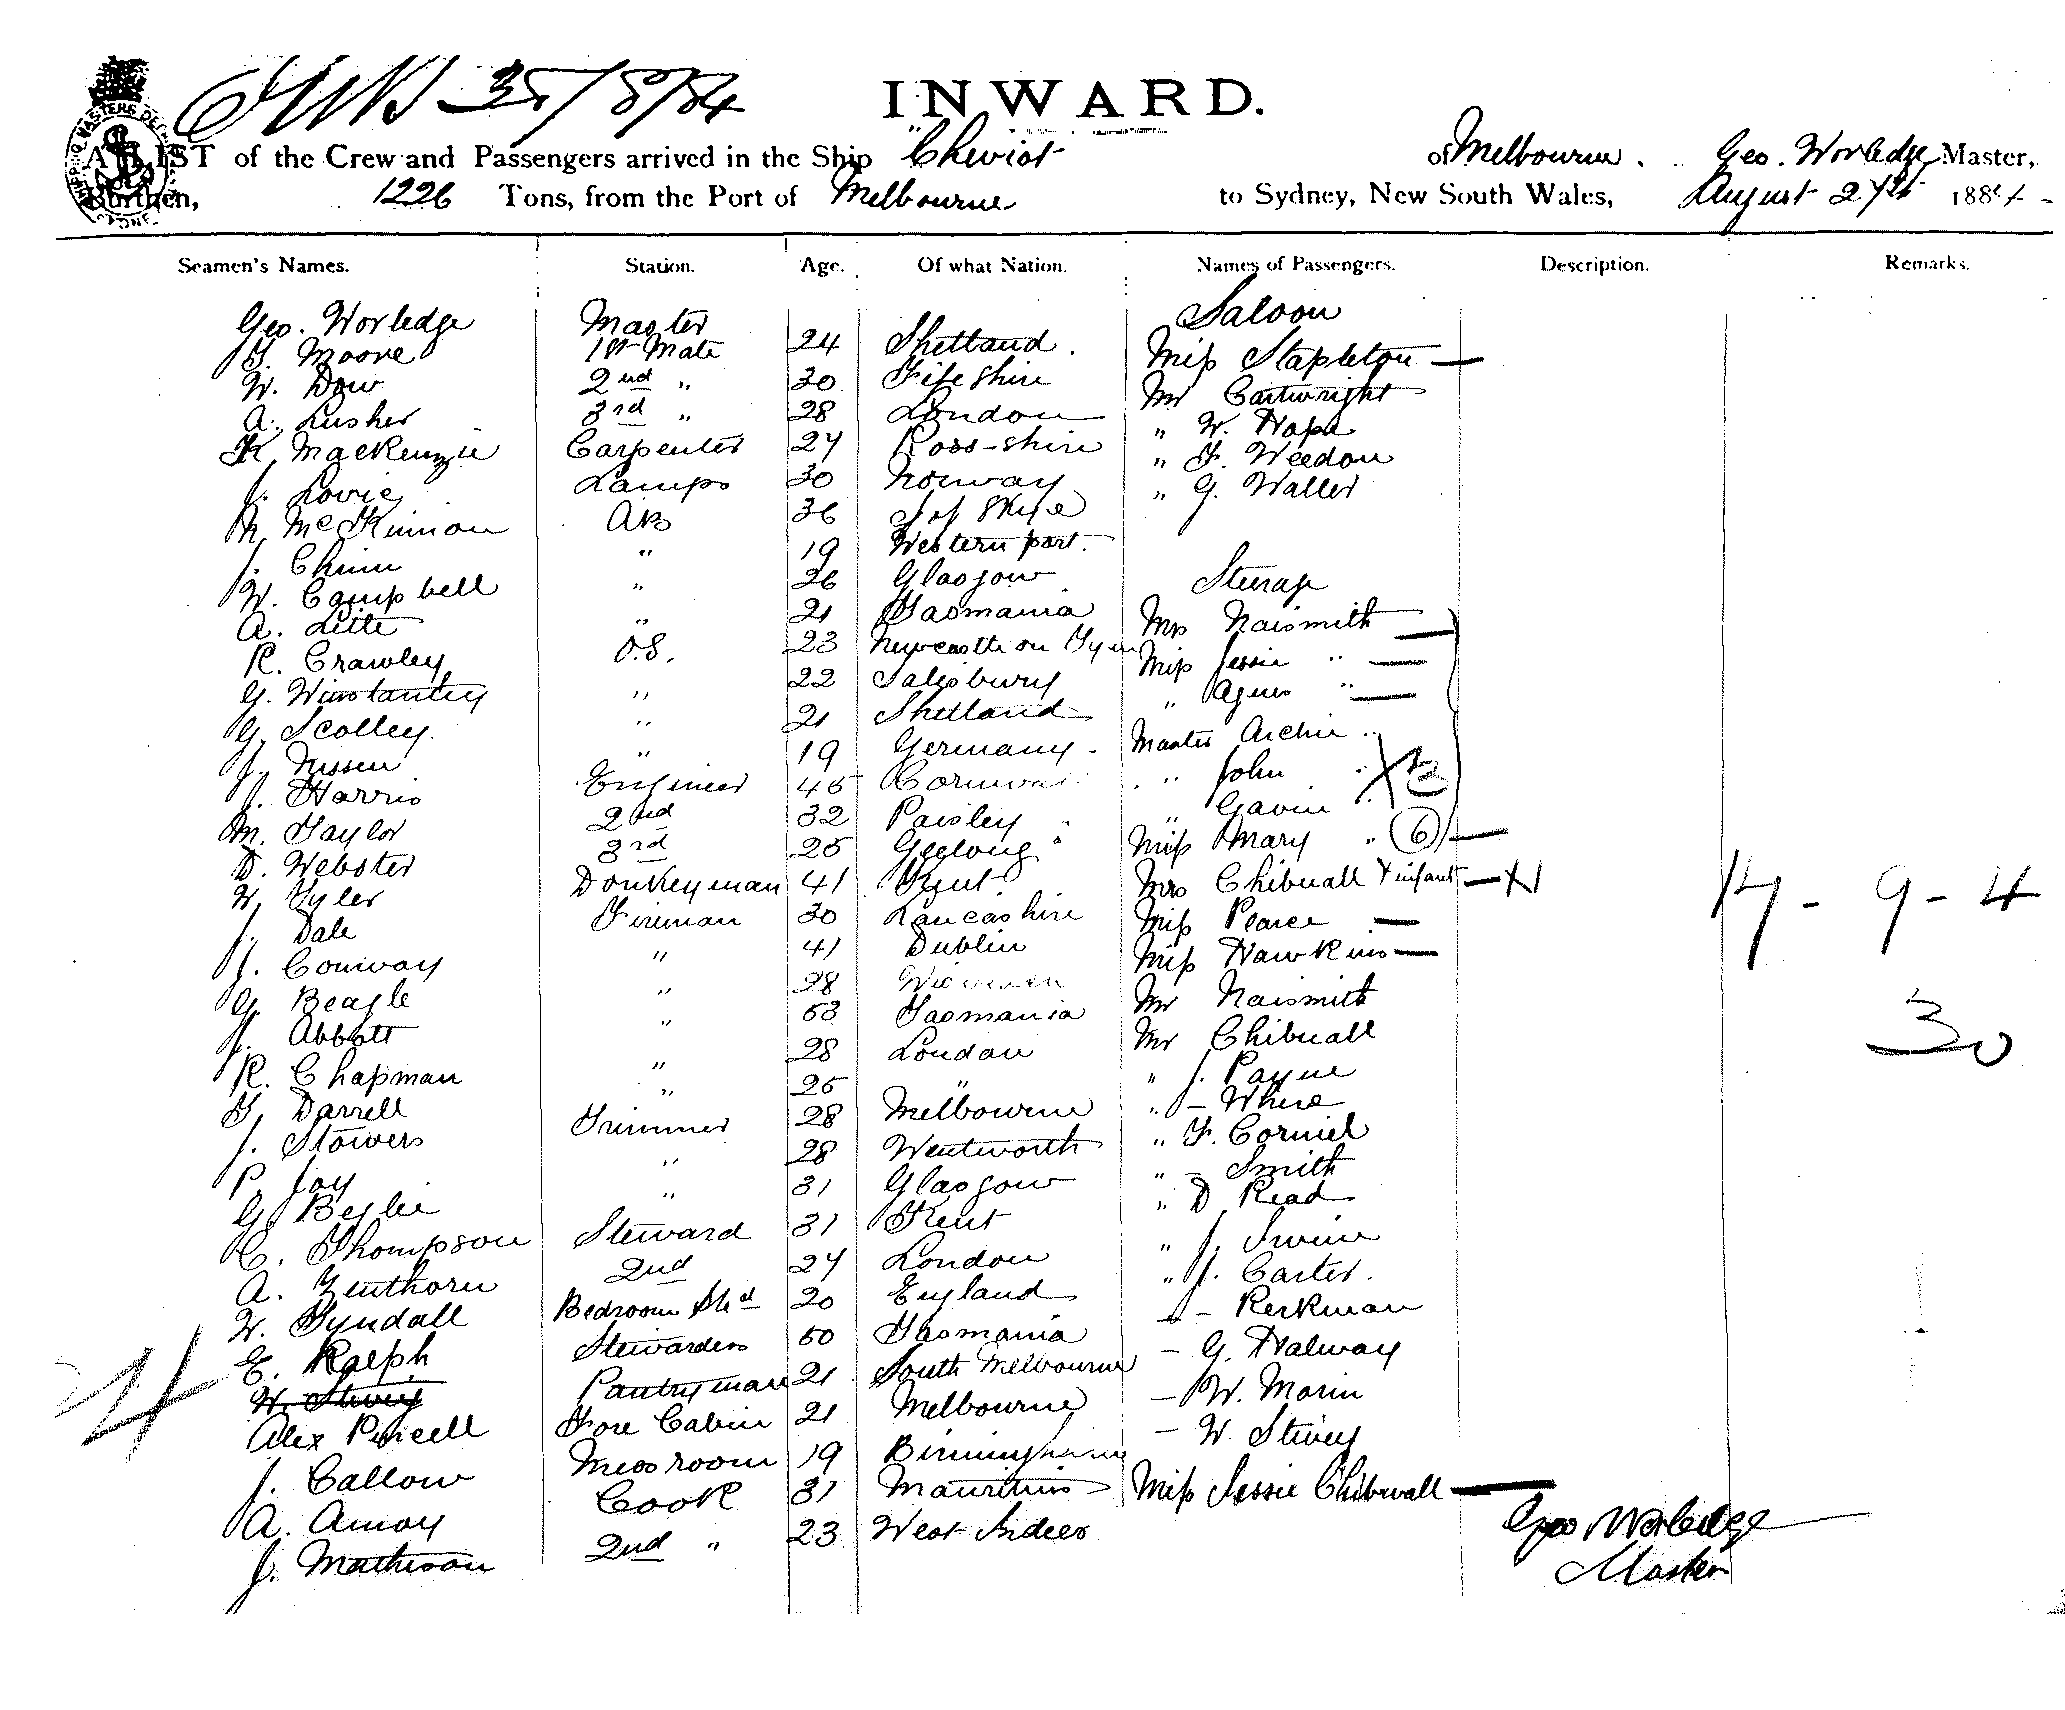 35/8/84
INWARD.
A LIST of the Crew and Passengers arrived in the Ship "Cheviot of Melbourne. Geo. Worledge Master,
Burthen, 1226 Tons, from the Port of Melbourne to Sydney, New South Wales, August 27th 1884
Seamen's Names. Station. Age. Of what Nation. Names of Passengers. Description. Remarks.
Geo. Worledge Master Saloon
T. Moore 1st Mate 24 Shetland. Miss Stapleton —
W. Dow 2nd " 30 Fifeshire Mr Cartwright
A. Lusher 3rd " 28 London " W. Hope
K. Mackenzie Carpenter 27 Ross-shire " F. Weedon
J. Lovie Lamps 30 Norway " G. Waller
M. McKinnon AB 36 I of Skye
J. Chinn " 19 Western port.
W. Campbell " 26 Glasgow Steerage
A. Lette " 21 Tasmania Mrs Naismith —
R. Crawley O.S. 23 Newcastle on Tyne Miss Jessie " —
G. Winstanley " 22 Salisbury " Agnes " —
G. Scolley. " 21 Shetland Master Archie "
J. Nissen " 19 Germany. " John "
J. Harris Engineer 45 Cornwall " Gavin "
M. Taylor 2nd 32 Paisley " Miss Mary " 6 —
D. Webster 3rd 25 Geelong " Mrs Chibnall & infant —
W. Tyler Donkeyman 41 Miss Pearce — 14 - 9 - 4
J. Dale Fireman 30 Lancashire Miss Hawkins —
J. Conway " 41 Dublin Mr Naismith
G. Beagle " 28 Mr Chibnall 30
J. Abbott " 53 Tasmania " J. Payne
R. Chapman " 28 London " —
T. Darrell " 25 " " F. Cormick
J. Stowers Trimmer 28 Melbourne " — Smith
P. Joy " 28 Wentworth " D Read
G. Beglie " 31 Glasgow " J.
C. Thompson Steward 31 Kent " J. Carter.
A. 2nd 27 London —
W. Tyndall Bedroom Std 20 England — G. Halway
E. Ralph Stewardess 50 Tasmania — W. Morin
W. Stivey Pantryman 21 South Melbourne — W. Stivey
Alex Purcell Fore Cabin 21 Melbourne Miss Jessie Chibnall —
J. Callow Messroom 19 Birmingham
A. Amoy Cook 31 Mauritius Geo Worledge
J. Mathison 2nd " 23 West Indies Master